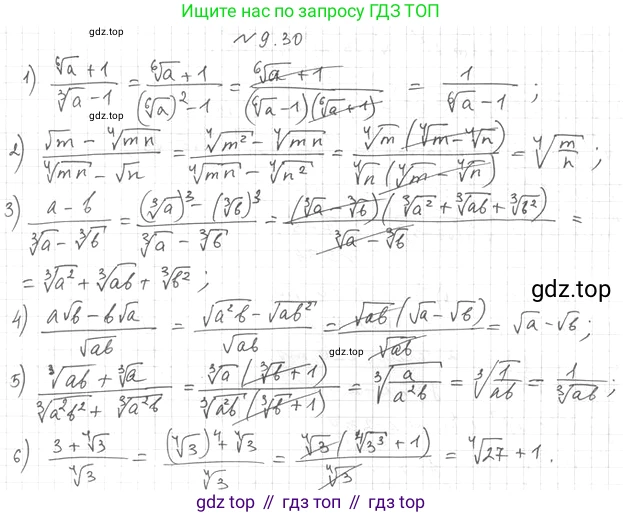 Ищите нас по запросу ГДЗ ТОП
gdz.top
№ 9.30
1) \frac{\sqrt[6]{a}+1}{\sqrt[3]{a}-1} = \frac{\sqrt[6]{a}+1}{(\sqrt[6]{a})^2-1} = \frac{\sqrt[6]{a}+1}{(\sqrt[6]{a}-1)(\sqrt[6]{a}+1)} = \frac{1}{\sqrt[6]{a}-1};
2) \frac{\sqrt{m}-\sqrt[4]{mn}}{\sqrt[4]{mn}-\sqrt{n}} = \frac{\sqrt[4]{m^2}-\sqrt[4]{mn}}{\sqrt[4]{mn}-\sqrt[4]{n^2}} = \frac{\sqrt[4]{m}(\sqrt[4]{m}-\sqrt[4]{n})}{\sqrt[4]{n}(\sqrt[4]{m}-\sqrt[4]{n})} = \sqrt[4]{\frac{m}{n}};
3) \frac{a-b}{\sqrt[3]{a}-\sqrt[3]{b}} = \frac{(\sqrt[3]{a})^3-(\sqrt[3]{b})^3}{\sqrt[3]{a}-\sqrt[3]{b}} = \frac{(\sqrt[3]{a}-\sqrt[3]{b})(\sqrt[3]{a^2}+\sqrt[3]{ab}+\sqrt[3]{b^2})}{\sqrt[3]{a}-\sqrt[3]{b}} =
= \sqrt[3]{a^2}+\sqrt[3]{ab}+\sqrt[3]{b^2};
gdz.top
4) \frac{a\sqrt{b}-b\sqrt{a}}{\sqrt{ab}} = \frac{\sqrt{a^2b}-\sqrt{ab^2}}{\sqrt{ab}} = \frac{\sqrt{ab}(\sqrt{a}-\sqrt{b})}{\sqrt{ab}} = \sqrt{a}-\sqrt{b};
5) \frac{\sqrt[3]{ab}+\sqrt[3]{a}}{\sqrt[3]{a^2b^2}+\sqrt[3]{a^2b}} = \frac{\sqrt[3]{a}(\sqrt[3]{b}+1)}{\sqrt[3]{a^2b}(\sqrt[3]{b}+1)} = \sqrt[3]{\frac{a}{a^2b}} = \sqrt[3]{\frac{1}{ab}} = \frac{1}{\sqrt[3]{ab}};
6) \frac{3+\sqrt[4]{3}}{\sqrt[4]{3}} = \frac{(\sqrt[4]{3})^4+\sqrt[4]{3}}{\sqrt[4]{3}} = \frac{\sqrt[4]{3}(\sqrt[4]{3^3}+1)}{\sqrt[4]{3}} = \sqrt[4]{27}+1.
gdz.top // гдз топ // гдз.топ